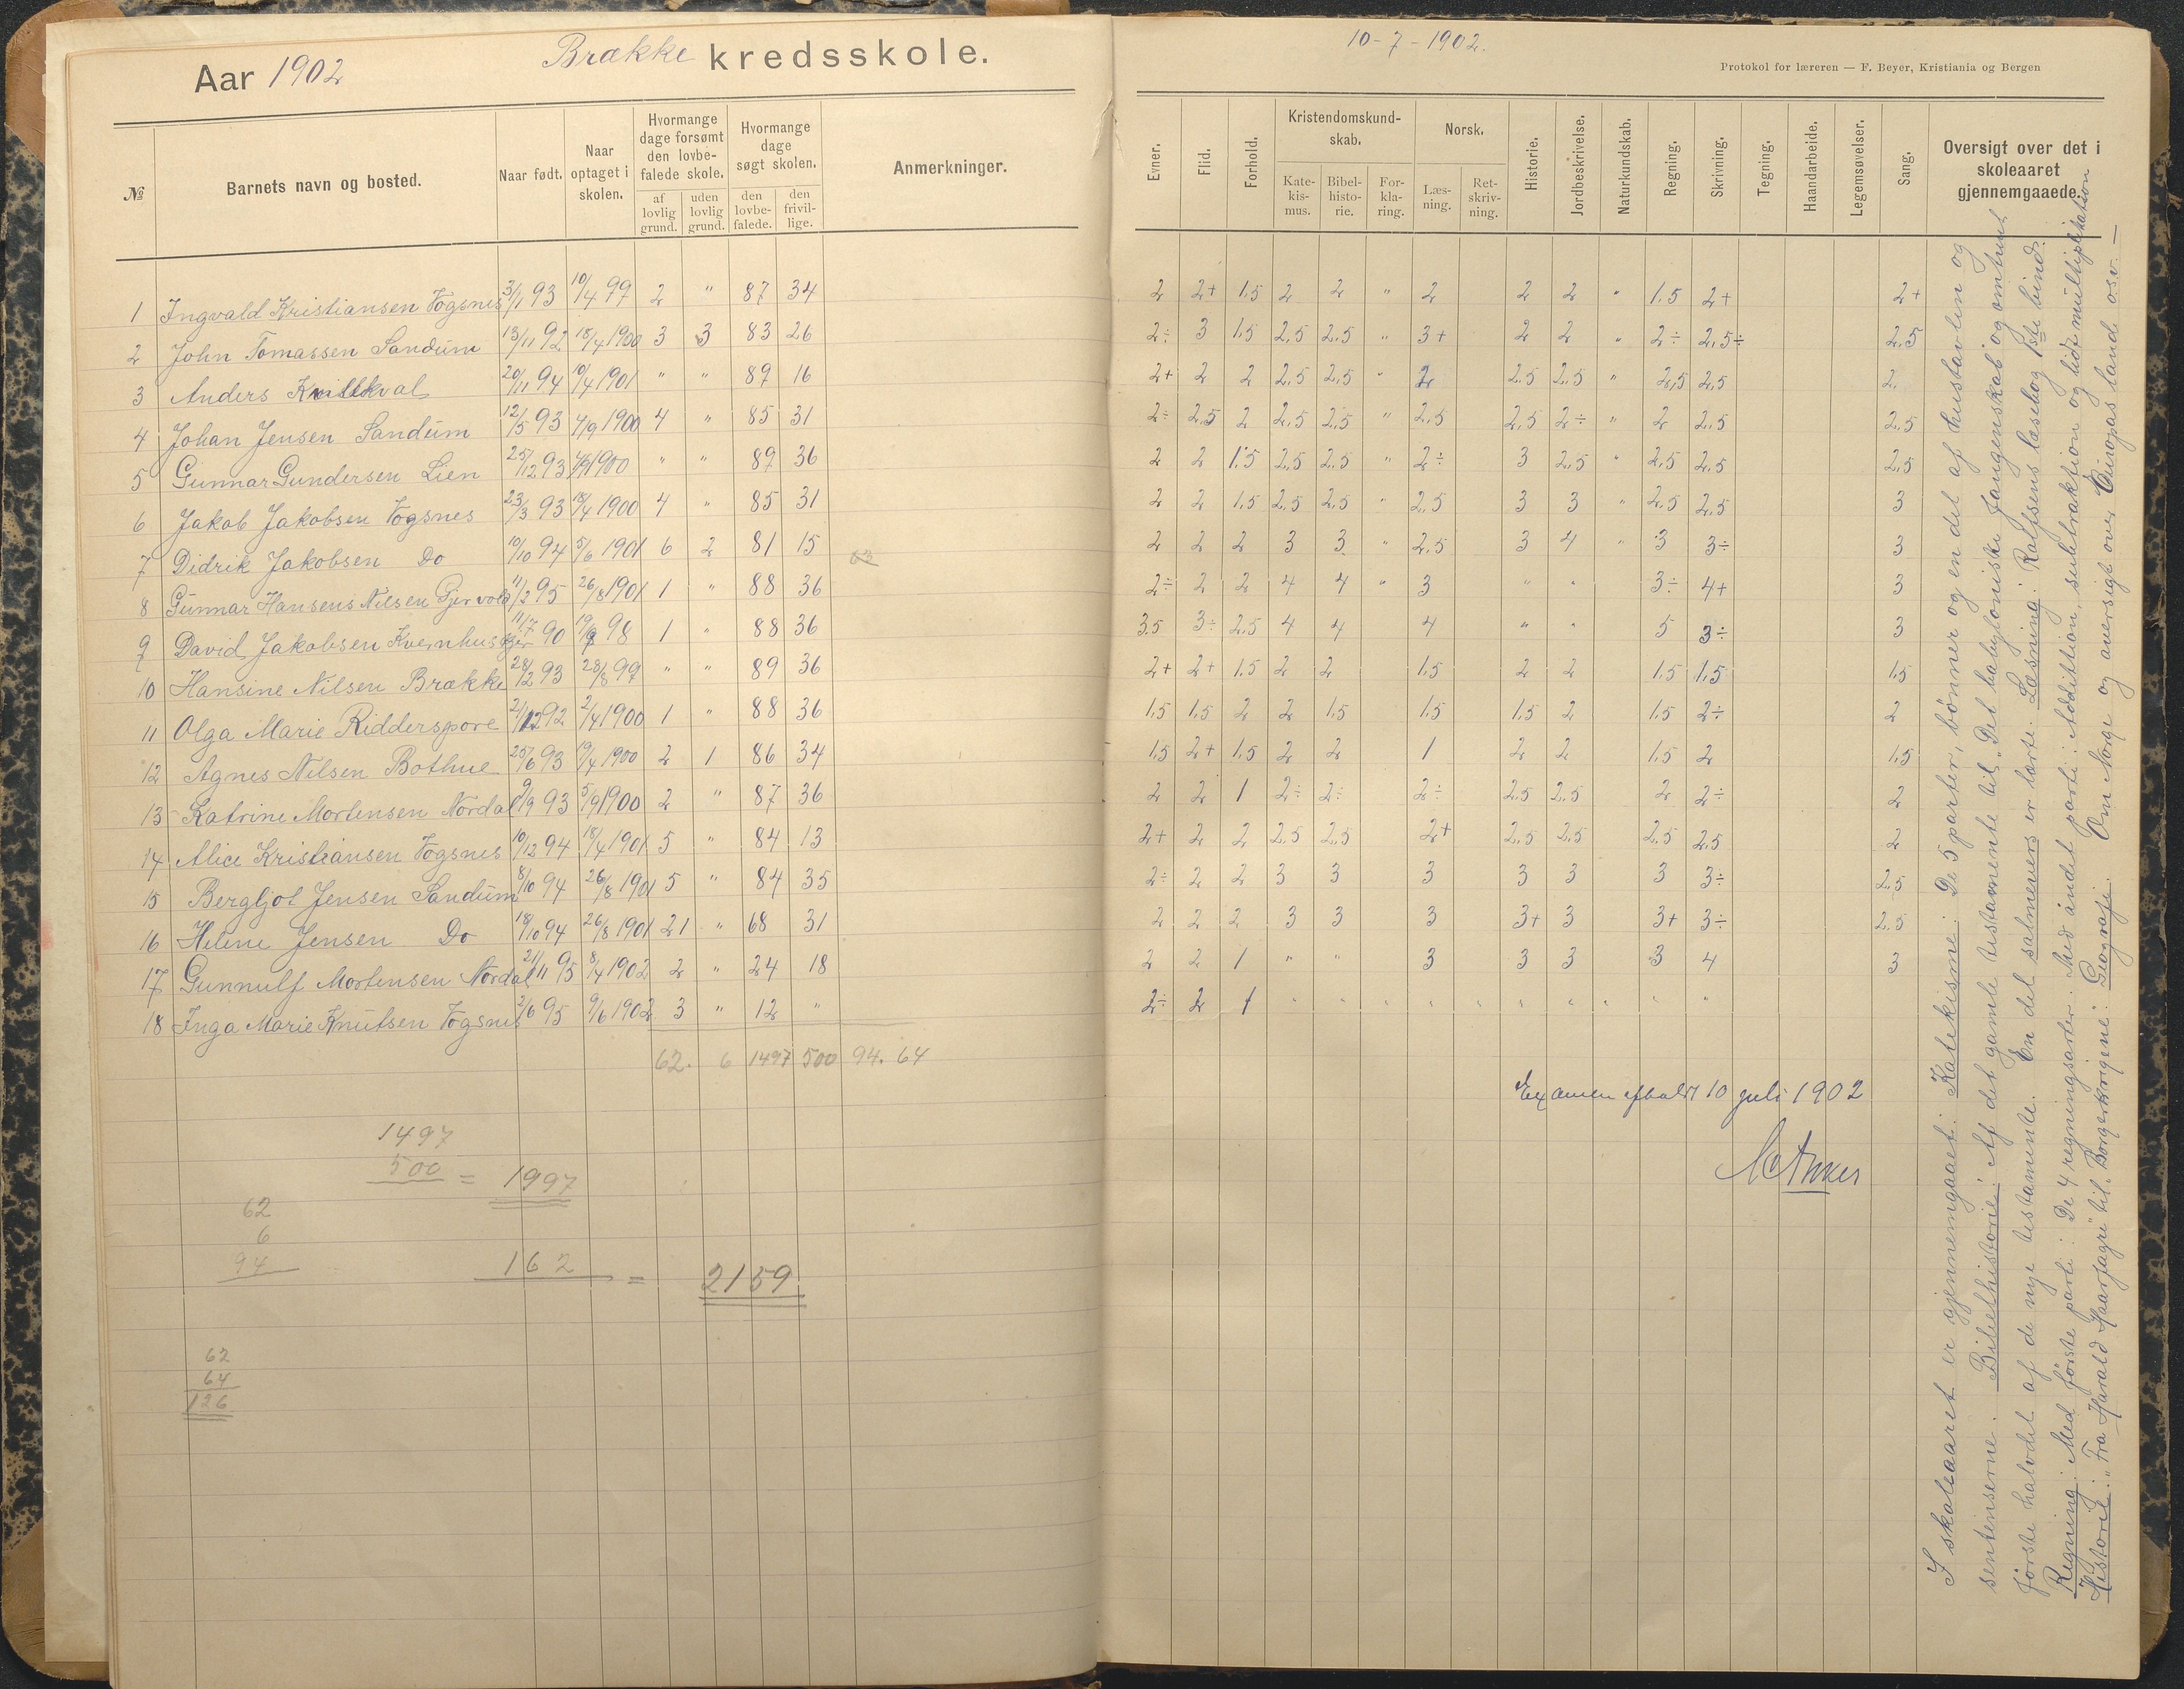 Aar 1902 Brække kredsskole.
№ Barnets navn og bosted. Naar født. Naar optaget i skolen. Hvormange dage forsømt den lovbefalede skole. af lovlig grund. uden lovlig grund. Hvormange dage søgt skolen. den lovbefalede. den frivillige. Anmerkninger.
1 Ingvald Kristiansen Vogsnes 3/1 93 10/4 99 2 " 87 34
2 John Tomassen Sandum 13/11 92 18/4 1900 3 3 83 26
3 Anders 20/11 94 10/4 1901 " " 89 16
4 Johan Jensen Sandum 12/5 93 4/9 1900 4 " 85 31
5 Gunnar Gundersen Lien 25/12 93 4/9 1900 " " 89 36
6 Jakob Jakobsen Vogsnes 23/3 93 18/4 1900 4 " 85 31
7 Didrik Jakobsen Do 10/10 94 5/6 1901 6 2 81 15
8 Gunnar Hansens Nilsen 11/2 95 26/8 1901 1 " 88 36
9 David Jakobsen 11/7 90 98 1 " 88 36
10 Hansine Nilsen Brække 28/2 93 28/8 99 " " 89 36
11 Olga Marie Ridderspore 21/12 92 2/4 1900 1 " 88 36
12 Agnes Nilsen Bothue 25/6 93 19/4 1900 2 1 86 34
13 Katrine Mortensen Nordal 9/9 93 5/9 1900 2 " 87 36
14 Alice Kristiansen Vogsnes 10/12 94 18/4 1901 5 " 84 13
15 Bergljot Jensen Sandum 8/10 94 26/8 1901 5 " 84 35
16 Helene Jensen Do 18/10 94 26/8 1901 21 " 68 31
17 Gunnulf Mortensen Nordal 21/11 95 8/4 1902 2 " 24 18
18 Inga Marie Knutsen Vogsnes 2/6 95 9/6 1902 3 " 12 "
62. 6 1497 500 94. 64
1497
500 = 1997
62
6
94 162 = 2159
62
64
126
10-7-1902.
Protokol for læreren — F. Beyer, Kristiania og Bergen
Evner. Flid. Forhold. Kristendomskundskab. Katekismus. Bibelhistorie. Forklaring. Norsk. Læsning. Retskrivning. Historie. Jordbeskrivelse. Naturkundskab. Regning. Skrivning. Tegning. Haandarbeide. Legemsøvelser. Sang. Oversigt over det i skoleaaret gjennemgaaede.
2 2+ 1.5 2 2 " 2 2 2 " 1.5 2+ 2+
2÷ 3 1.5 2,5 2,5 " 3+ 2 2 " 2÷ 2,5÷ 2,5
2+ 2 2 2,5 2,5 " 2 2.5 2,5 " 2,5 2,5 2.
2÷ 2,5 2 2,5 2,5 " 2,5 2,5 2÷ " 2 2,5 2.5
2 2 1.5 2,5 2,5 " 2÷ 3 2,5 " 2,5 2,5 2,5
2 2 1.5 2,5 2,5 " 2,5 3 3 " 2,5 2,5 3
2 2 2 3 3 " 2,5 3 4 " 3 3÷ 3
2÷ 2 2 4 4 " 3 " " 3÷ 4+ 3
3.5 3÷ 2,5 4 4 4 " " 5 3÷ 3
2+ 2+ 1.5 2 2 1.5 2 2 1.5 1.5 1.5
1.5 1.5 2 2 1.5 1.5 1.5 2 1.5 2÷ 2
1.5 2+ 1.5 2 2 1 2 2 1.5 2 1,5
2 2 1 2÷ 2÷ 2÷ 2.5 2.5 2 2÷ 2
2+ 2 2 2.5 2.5 2+ 2.5 2.5 2.5 2.5 2
2÷ 2 2 3 3 3 3 3 3 3÷ 2.5
2 2 2 3 3 3 3+ 3 3+ 3÷ 2.5
2 2 1 " " 3 3 3 3 4 3
2÷ 2 1 " " " " " " " " " "
Examen afholdt 10 juli 1902
I skoleaaret er gjennemgaaet: Katekisme: De 5 parter, bønner og en del af hustavlen og
sentenserne. Bibelhistorie: Af det gamle testamente til "Det babyloniske fangenskab" og omtrent
første halvdel af de nye testamente. En del salmevers er lærte. Læsning: Rolfsens læsebog 1ste bind.
Regning: Med første parti: De 4 regningsarter. Med andet parti: Addition, subtraktion og lidt multiplikation
Historie: "Fra Harald Haarfagre" til "Borgerkrigene". Geografi. Om Norge og oversigt over Europas lande osv. —